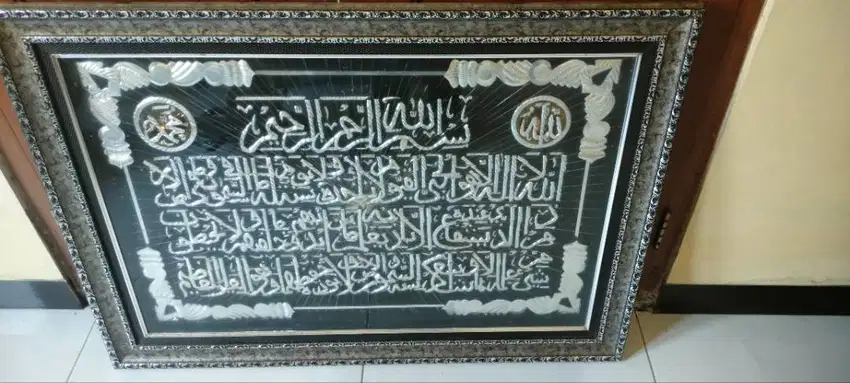 الله
بسم الله الرحمن الرحيم
محمد
الله لا اله الا هو الحي القيوم لا تاخذه سنة ولا نوم له ما في السموت وما في الارض
من ذا الذي يشفع عنده الا باذنه يعلم ما بين ايديهم وما خلفهم ولا يحيطون
بشيء من علمه الا بما شاء وسع كرسيه السموت والارض ولا يؤده حفظهما وهو العلي العظيم